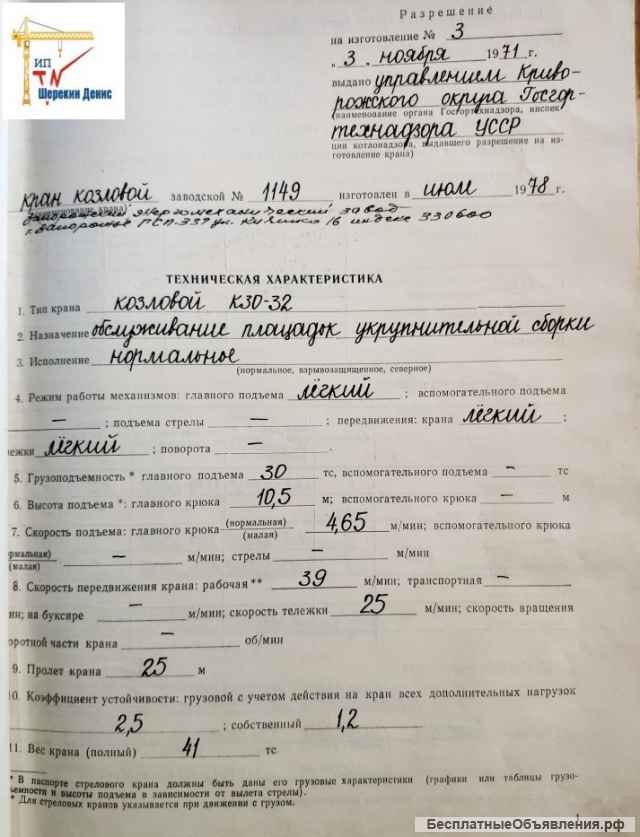 ИП
TN
Шерекин Денис
Разрешение
на изготовление № 3
„ 3 „ ноября 1971 г,
выдано управлением Криво-
рожского округа Госгор-
(наименование органа Госгортехнадзора, инспек
технадзора УССР
ции котлонадзора, выдавшего разрешение на из-
готовление крана)
кран козловой заводской № 1149 изготовлен в июле 1978 г.
Запорожский энергомеханический завод
г. Запорожье ГСП-337 ул. 16 индекс 330600
ТЕХНИЧЕСКАЯ ХАРАКТЕРИСТИКА
1. Тип крана козловой К30-32
2. Назначение обслуживание площадок укрупнительной сборки
3. Исполнение нормальное
(нормальное, взрывозащищенное, северное)
4. Режим работы механизмов: главного подъема лёгкий ; вспомогательного подъема
— ; подъема стрелы — ; передвижения: крана лёгкий ;
ежки лёгкий ; поворота — .
5. Грузоподъемность * главного подъема 30 тс, вспомогательного подъема — тс
6. Высота подъема *: главного крюка 10,5 м; вспомогательного крюка — м
7. Скорость подъема: главного крюка (нормальная) (малая) 4,65 м/мин; вспомогательного крюка
рмальная) (малая) — м/мин; стрелы — м/мин
8. Скорость передвижения крана: рабочая ** 39 м/мин; транспортная —
ин; на буксире — м/мин; скорость тележки 25 м/мин; скорость вращения
оротной части крана — об/мин
9. Пролет крана 25 м
10. Коэффициент устойчивости: грузовой с учетом действия на кран всех дополнительных нагрузок
2,5 ; собственный 1,2
11. Вес крана (полный) 41 тс
* В паспорте стрелового крана должны быть даны его грузовые характеристики (графики или таблицы грузо-
ъемности и высоты подъема в зависимости от вылета стрелы).
* Для стреловых кранов указывается при движении с грузом.
1
БесплатныеОбъявления.рф